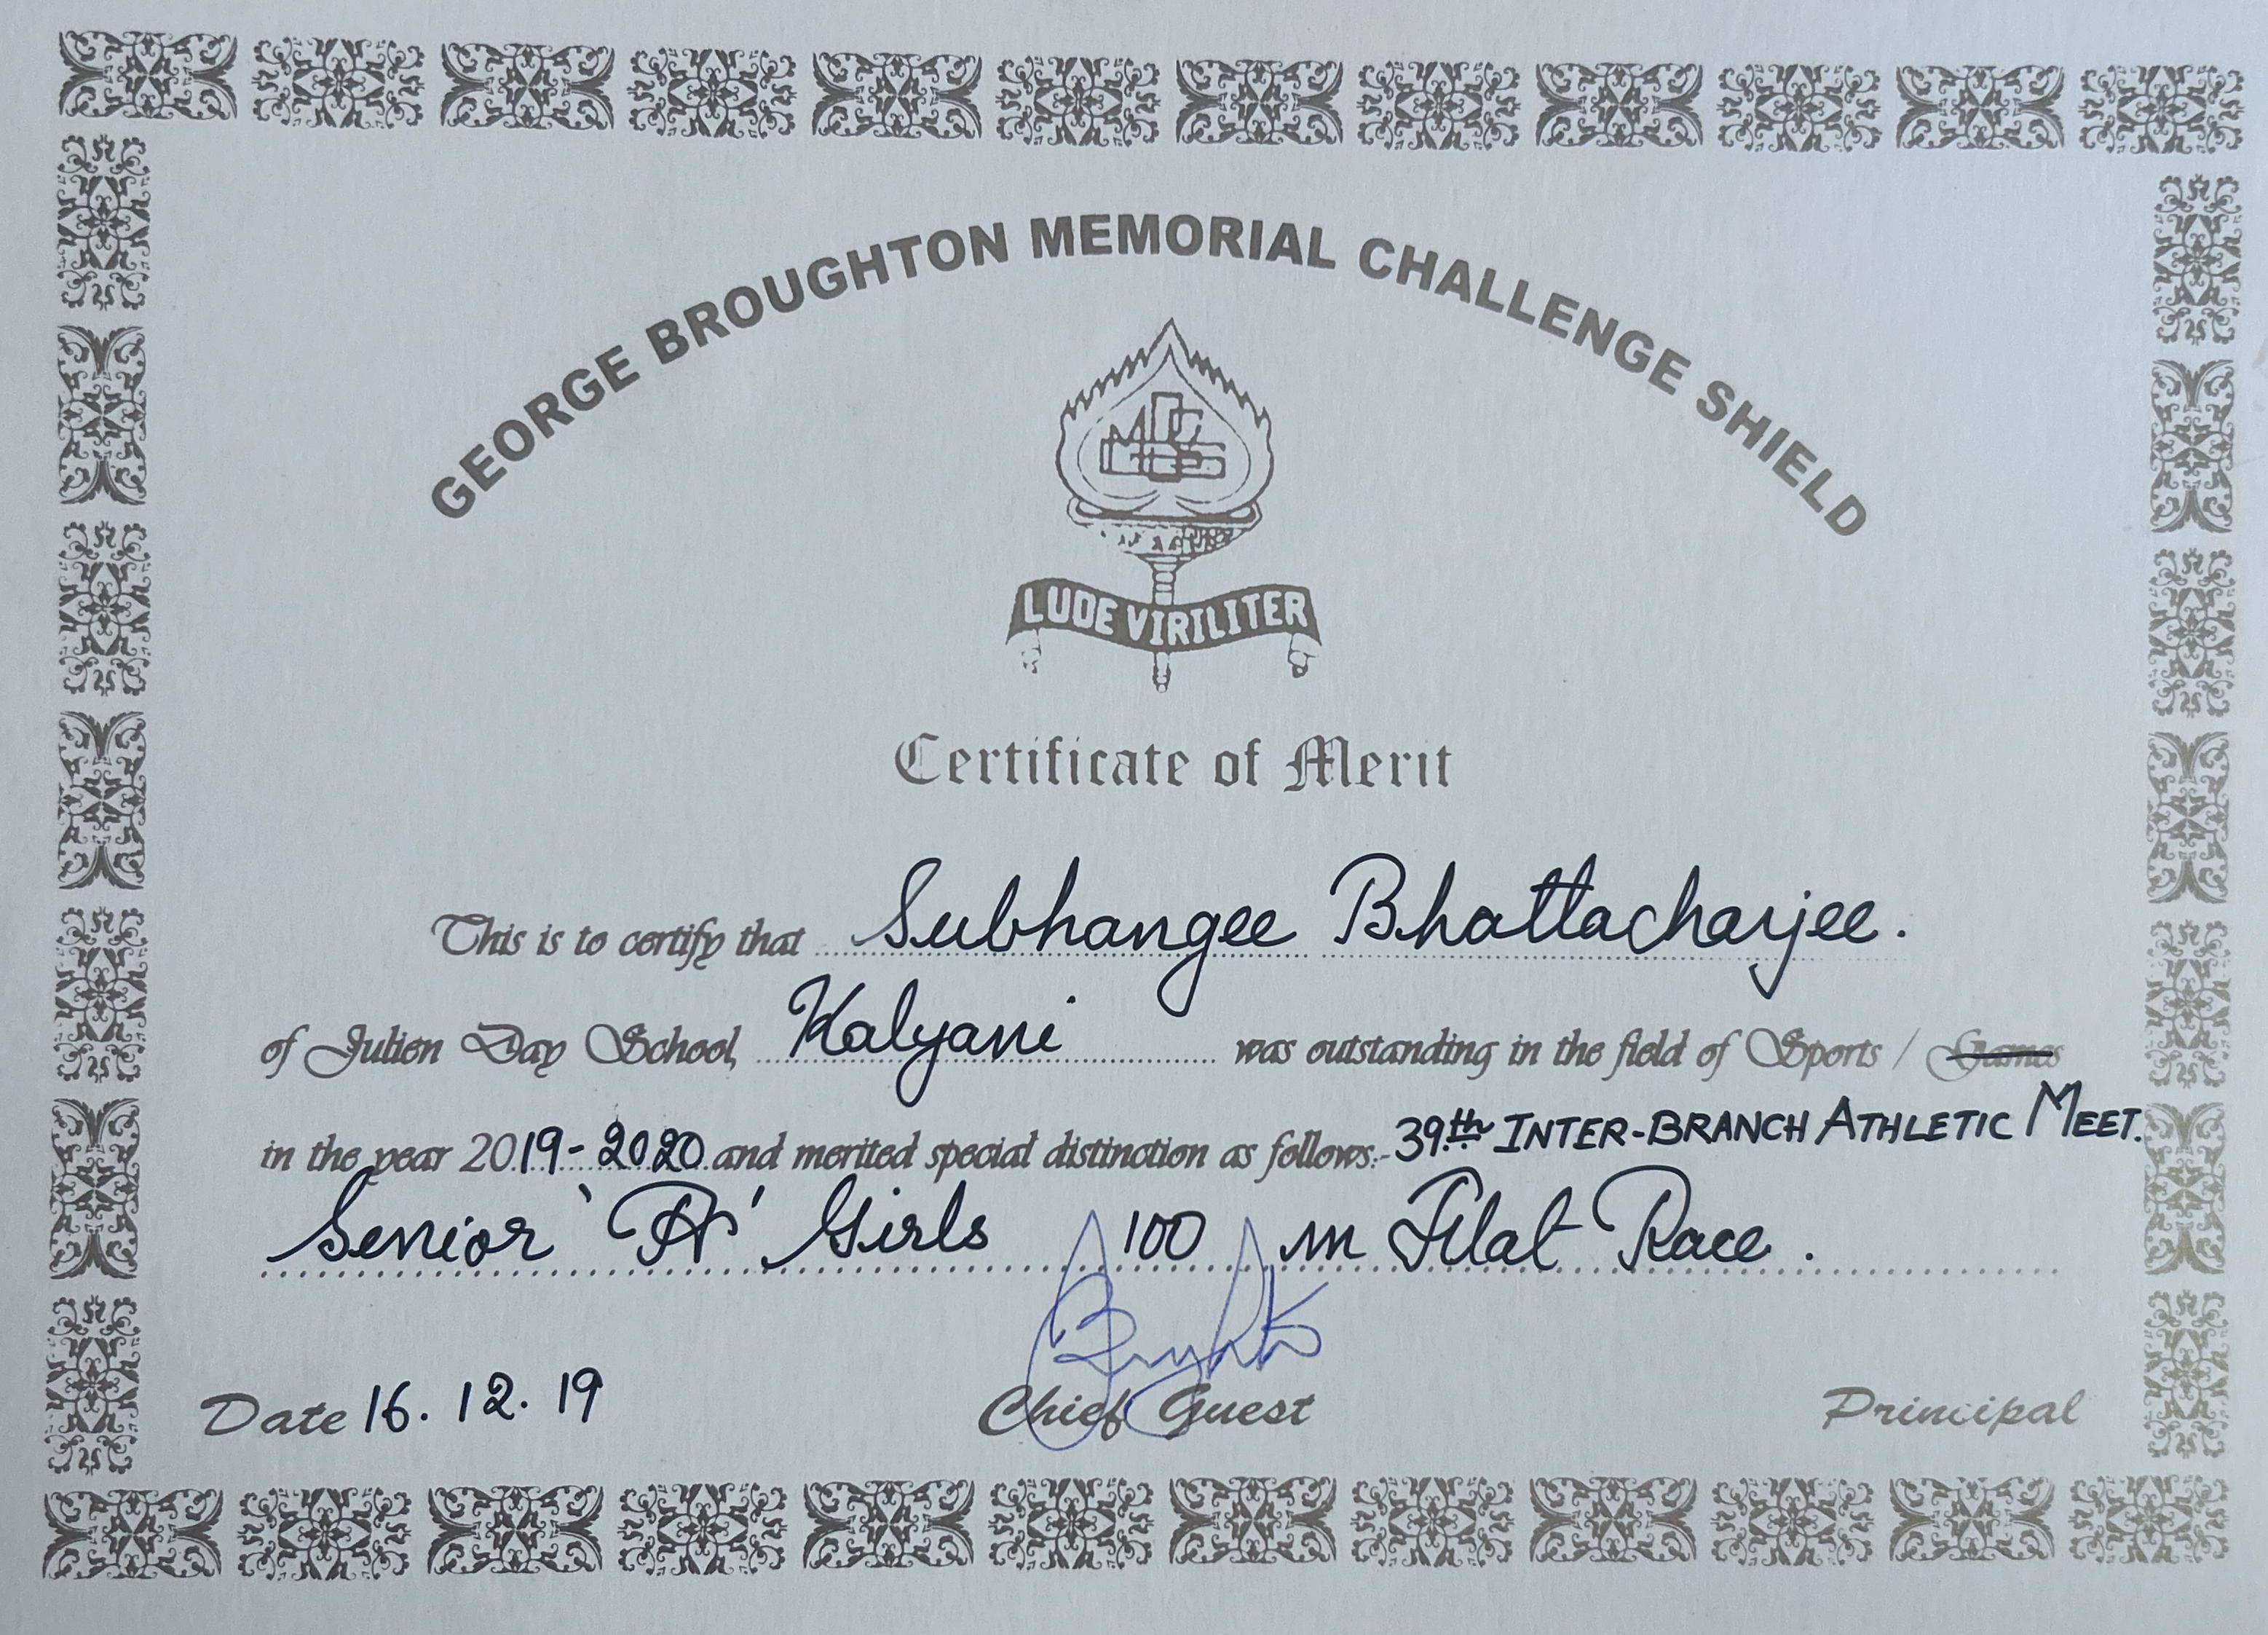 GEORGE BROUGHTON MEMORIAL CHALLENGE SHIELD
LUDE VIRILITER
Certificate of Merit
This is to certify that Subhangee Bhattacharjee.
of Julien Day School, Kalyani was outstanding in the field of Sports / Games
in the year 2019-2020 and merited special distinction as follows:- 39th INTER-BRANCH ATHLETIC MEET.
Senior 'A' Girls 100 m Flat Race.
Date 16. 12. 19
Chief Guest
Principal